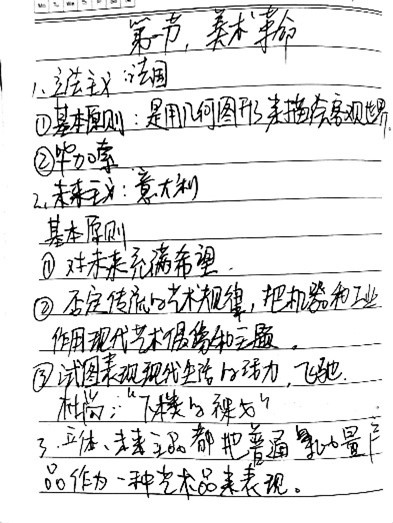 第一节，美术革命
1、立法主义：法国
①基本原则：是用几何图形来描绘客观世界.
②毕加索
2、未来主义：意大利
基本原则
① 对未来充满希望.
② 否定传统的艺术规律，把机器和工业
作用现代艺术偶像和主题。
③ 试图表现现代生活的活力，飞驰.
杜尚：“下楼的裸女”
3、立体、未来主义都把普通 量产
品作为一种艺术品来表现。